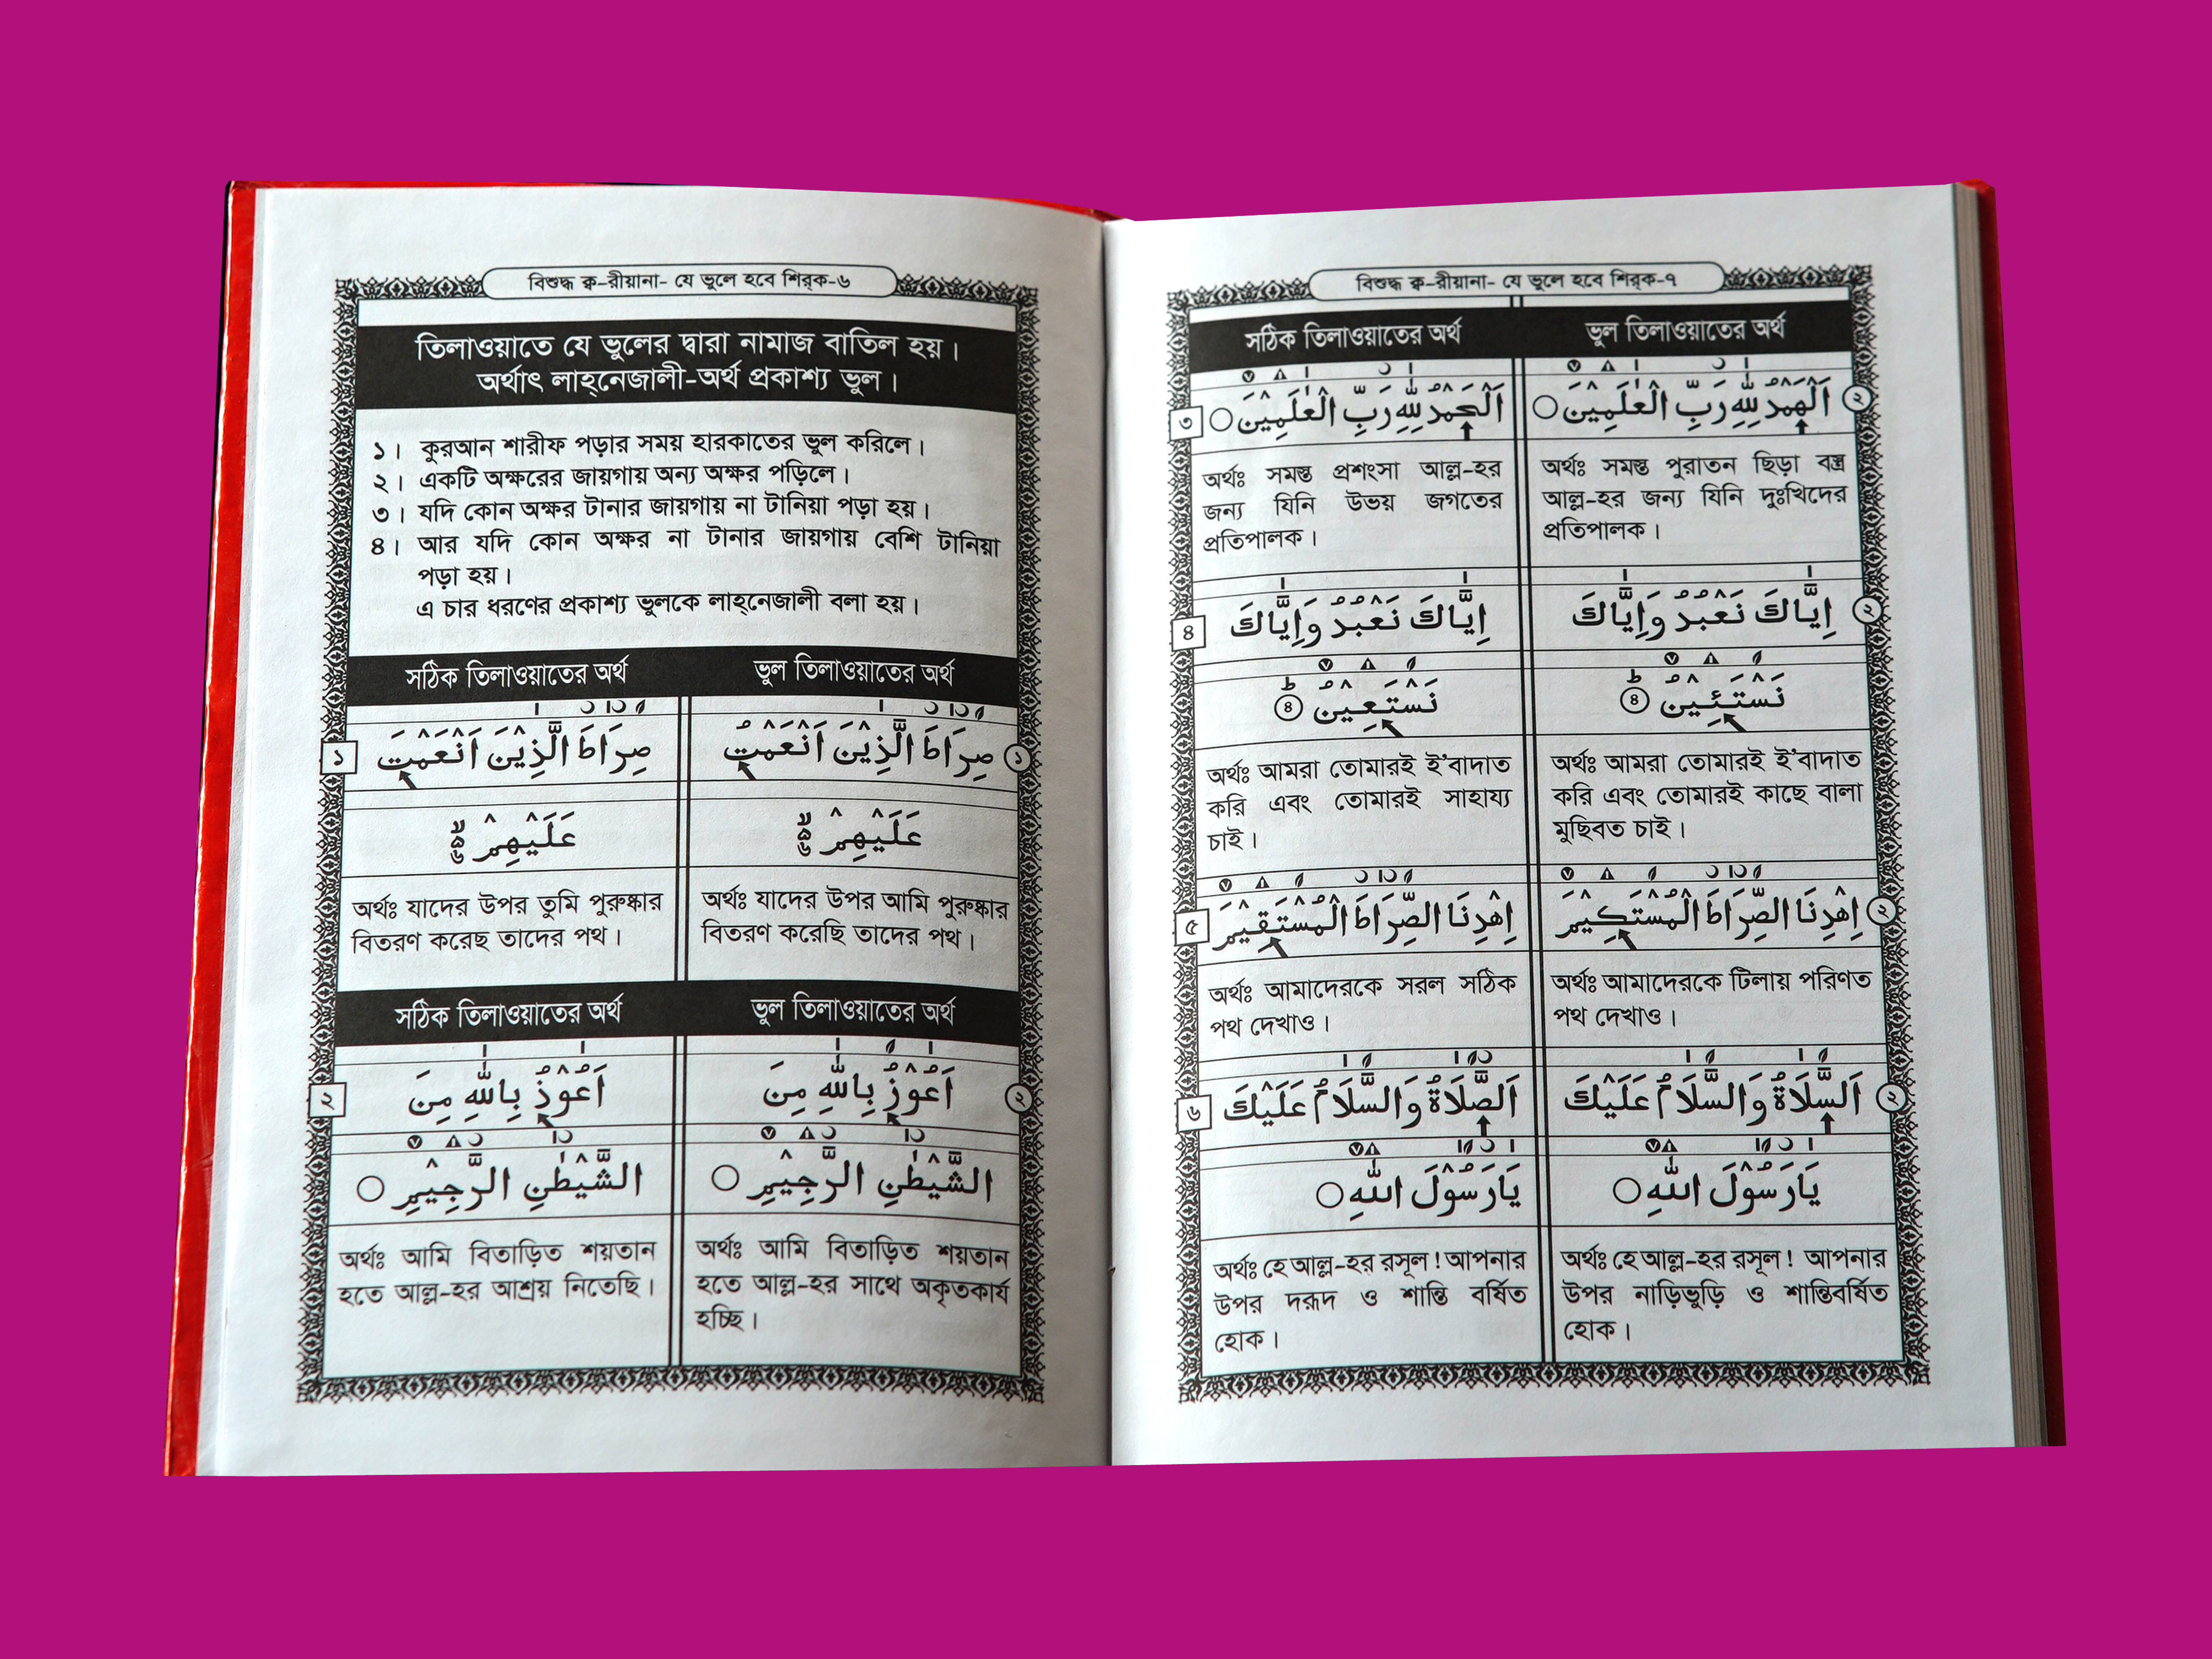 বিশুদ্ধ ক্ব-রীয়ানা- যে ভুলে হবে শির্‌ক-৬
তিলাওয়াতে যে ভুলের দ্বারা নামাজ বাতিল হয়।
অর্থাৎ লাহ্‌নেজালী-অর্থ প্রকাশ্য ভুল।
১। কুরআন শারীফ পড়ার সময় হারকাতের ভুল করিলে।
২। একটি অক্ষরের জায়গায় অন্য অক্ষর পড়িলে।
৩। যদি কোন অক্ষর টানার জায়গায় না টানিয়া পড়া হয়।
৪। আর যদি কোন অক্ষর না টানার জায়গায় বেশি টানিয়া
পড়া হয়।
এ চার ধরণের প্রকাশ্য ভুলকে লাহ্‌নেজালী বলা হয়।
সঠিক তিলাওয়াতের অর্থ
১
صِرَاطَ الَّذِيْنَ اَنْعَمْتَ
عَلَيْهِمْ
অর্থঃ যাদের উপর তুমি পুরুষ্কার
বিতরণ করেছ তাদের পথ।
ভুল তিলাওয়াতের অর্থ
১
صِرَاطَ الَّذِيْنَ اَنْعَمْتُ
عَلَيْهِمْ
অর্থঃ যাদের উপর আমি পুরুষ্কার
বিতরণ করেছি তাদের পথ।
সঠিক তিলাওয়াতের অর্থ
২
اَعُوْذُ بِاللّٰهِ مِنَ
الشَّيْطٰنِ الرَّجِيْمِ ○
অর্থঃ আমি বিতাড়িত শয়তান
হতে আল্ল-হর আশ্রয় নিতেছি।
ভুল তিলাওয়াতের অর্থ
২
اَعُوْزُ بِاللّٰهِ مِنَ
الشَّيْطٰنِ الرَّجِيْمِ ○
অর্থঃ আমি বিতাড়িত শয়তান
হতে আল্ল-হর সাথে অকৃতকার্য
হচ্ছি।
বিশুদ্ধ ক্ব-রীয়ানা- যে ভুলে হবে শির্‌ক-৭
সঠিক তিলাওয়াতের অর্থ
৩
اَلْحَمْدُ لِلّٰهِ رَبِّ الْعٰلَمِيْنَ ○
অর্থঃ সমস্ত প্রশংসা আল্ল-হর
জন্য যিনি উভয় জগতের
প্রতিপালক।
ভুল তিলাওয়াতের অর্থ
২
اَلْهَمْدُ لِلّٰهِ رَبِّ الْعٰلَمِيْنَ ○
অর্থঃ সমস্ত পুরাতন ছিড়া বস্ত্র
আল্ল-হর জন্য যিনি দুঃখিদের
প্রতিপালক।
৪
اِيَّاكَ نَعْبُدُ وَاِيَّاكَ
نَسْتَعِيْنُ ط ৪
অর্থঃ আমরা তোমারই ই'বাদাত
করি এবং তোমারই সাহায্য
চাই।
২
اِيَّاكَ نَعْبُدُ وَاِيَّاكَ
نَسْتَئِيْنُ ط ৪
অর্থঃ আমরা তোমারই ই'বাদাত
করি এবং তোমারই কাছে বালা
মুছিবত চাই।
৫
اِهْدِنَا الصِّرَاطَ الْمُسْتَقِيْمَ
অর্থঃ আমাদেরকে সরল সঠিক
পথ দেখাও।
২
اِهْدِنَا الصِّرَاطَ الْمُسْتَكِيْمَ
অর্থঃ আমাদেরকে টিলায় পরিণত
পথ দেখাও।
৬
اَلصَّلَاةُ وَالسَّلَامُ عَلَيْكَ
يَارَسُوْلَ اللّٰهِ ○
অর্থঃ হে আল্ল-হর রসূল! আপনার
উপর দরূদ ও শান্তি বর্ষিত
হোক।
২
اَلسَّلَاةُ وَالسَّلَامُ عَلَيْكَ
يَارَسُوْلَ اللّٰهِ ○
অর্থঃ হে আল্ল-হর রসূল! আপনার
উপর নাড়িভুড়ি ও শান্তিবর্ষিত
হোক।